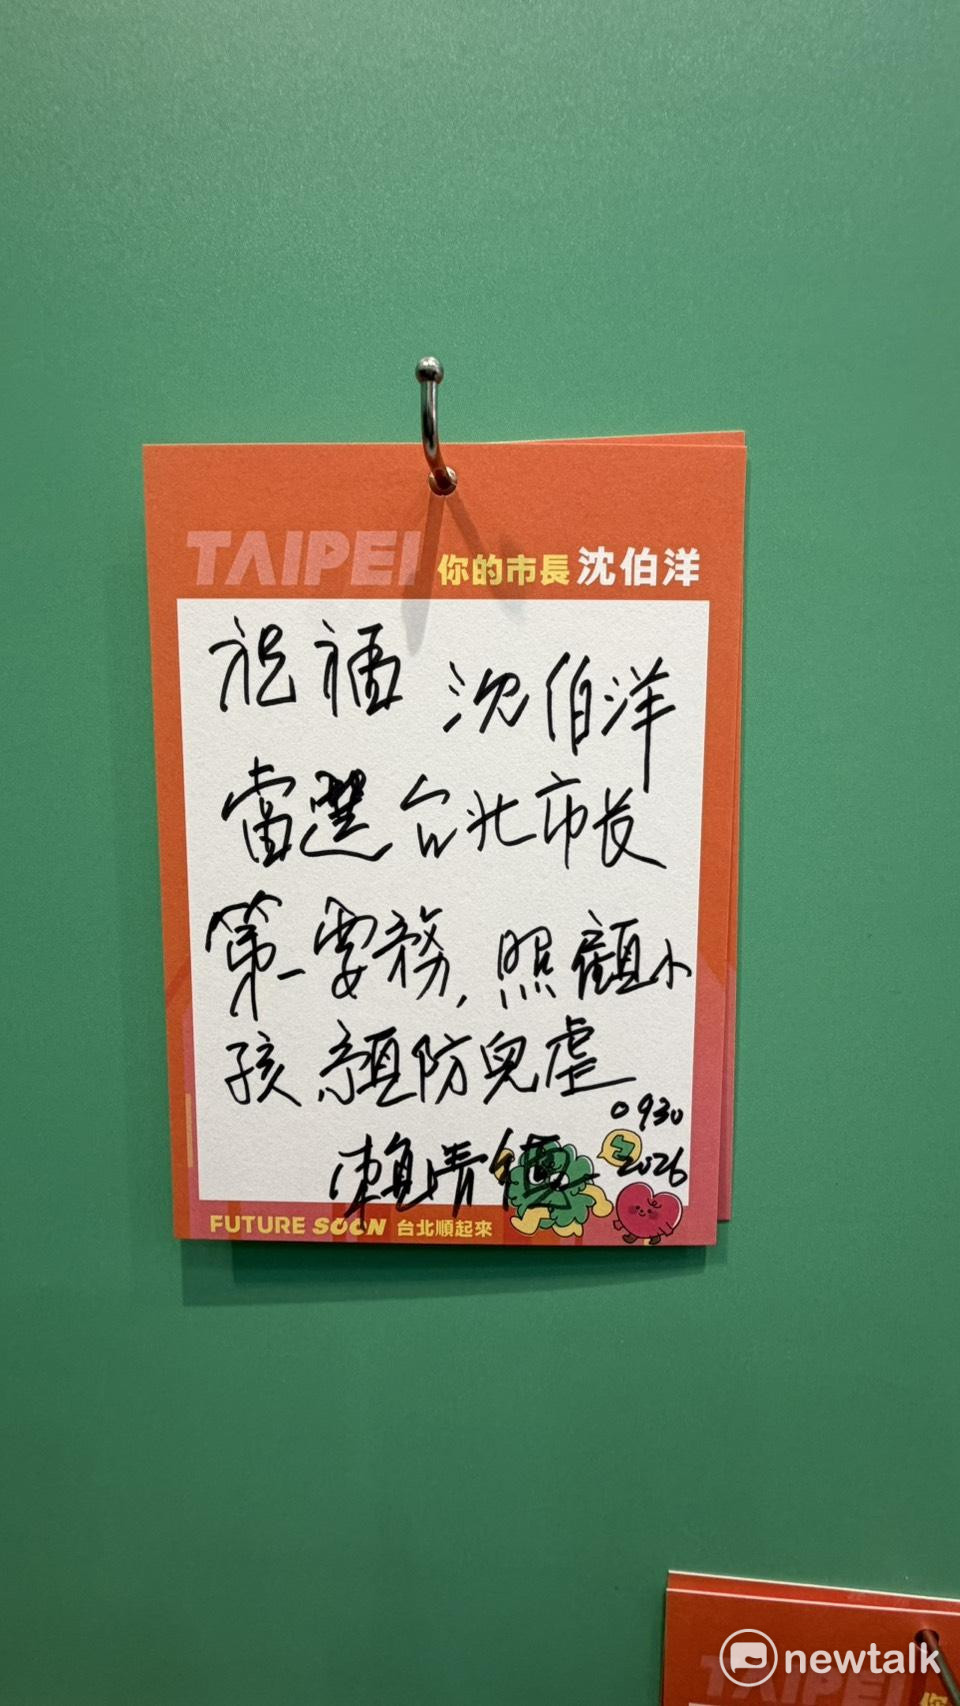 TAIPEI 你的市長 沈伯洋
祝福 沈伯洋
當選台北市長
第一要務，照顧小
孩 預防兒虐
0930
賴清德 2026
FUTURE SOON 台北順起來
TAIPEI 你
newtalk